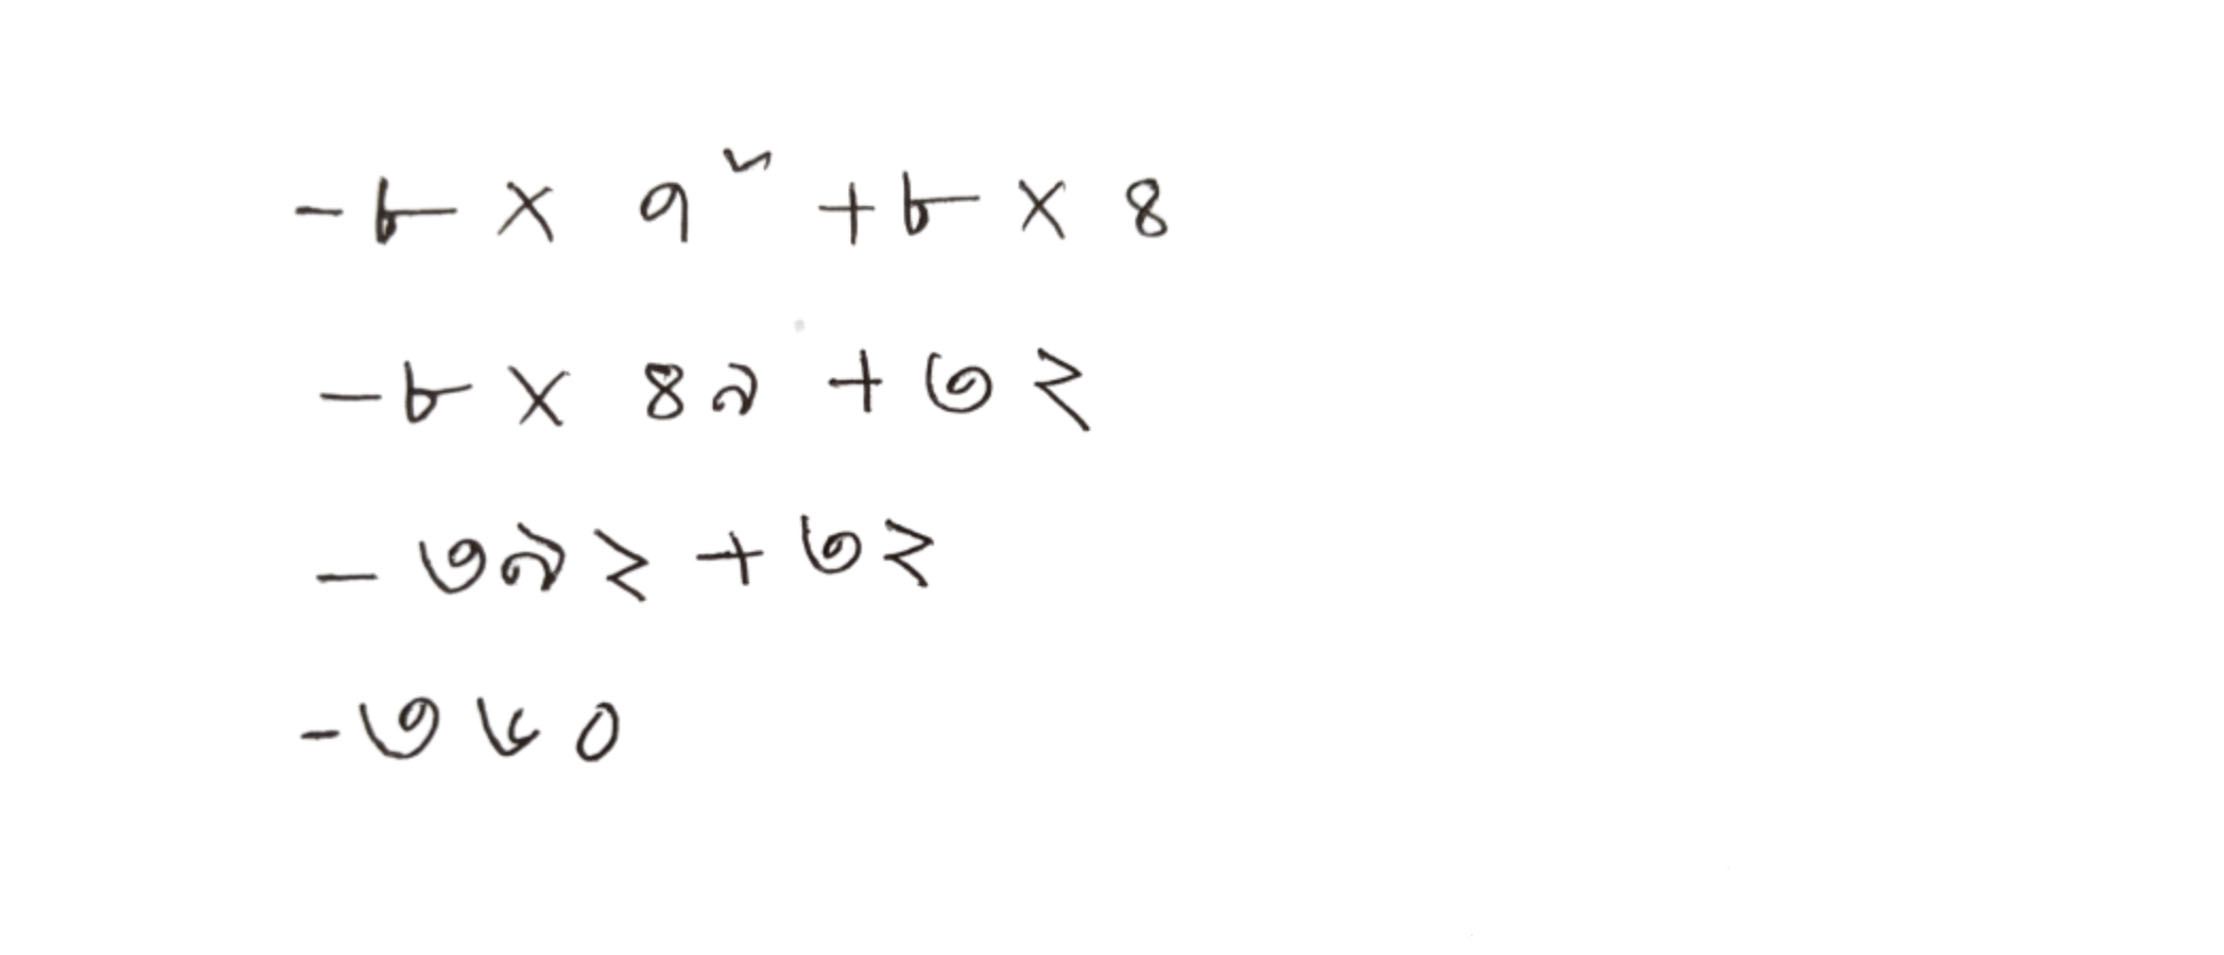 -৮ × ৭² + ৮ × ৪
-৮ × ৪৯ + ৩২
-৩৯২ + ৩২
-৩৬০